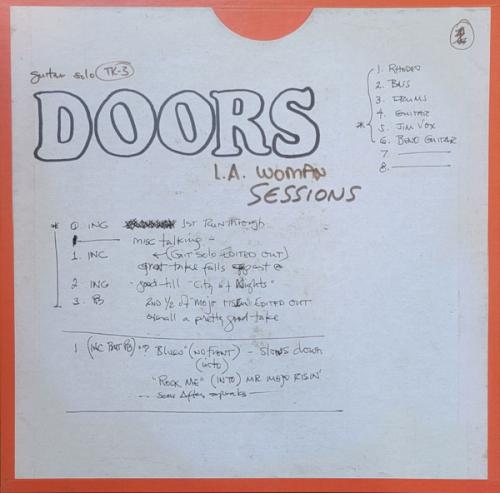 guitar solo TK-3
DOORS
L.A. WOMAN
SESSIONS
1. RHODES
2. BASS
3. DRUMS
4. GUITAR
* 5. JIM VOX
6. BEND GUITAR
7.
8.
* 0 ING 1st Runthrough
misc talking -
1. INC ← (GIT SOLO EDITED OUT)
great take falls apart @
2 ING good till "City at Nights"
3. PB 2ND 1/2 of "MOJO RISIN" EDITED OUT
overall a pretty good take
1 (INC BUT PB) "? BLUES" (NO FRONT) - Slows down
(into)
"ROCK ME" (INTO) MR MOJO RISIN'
- some After